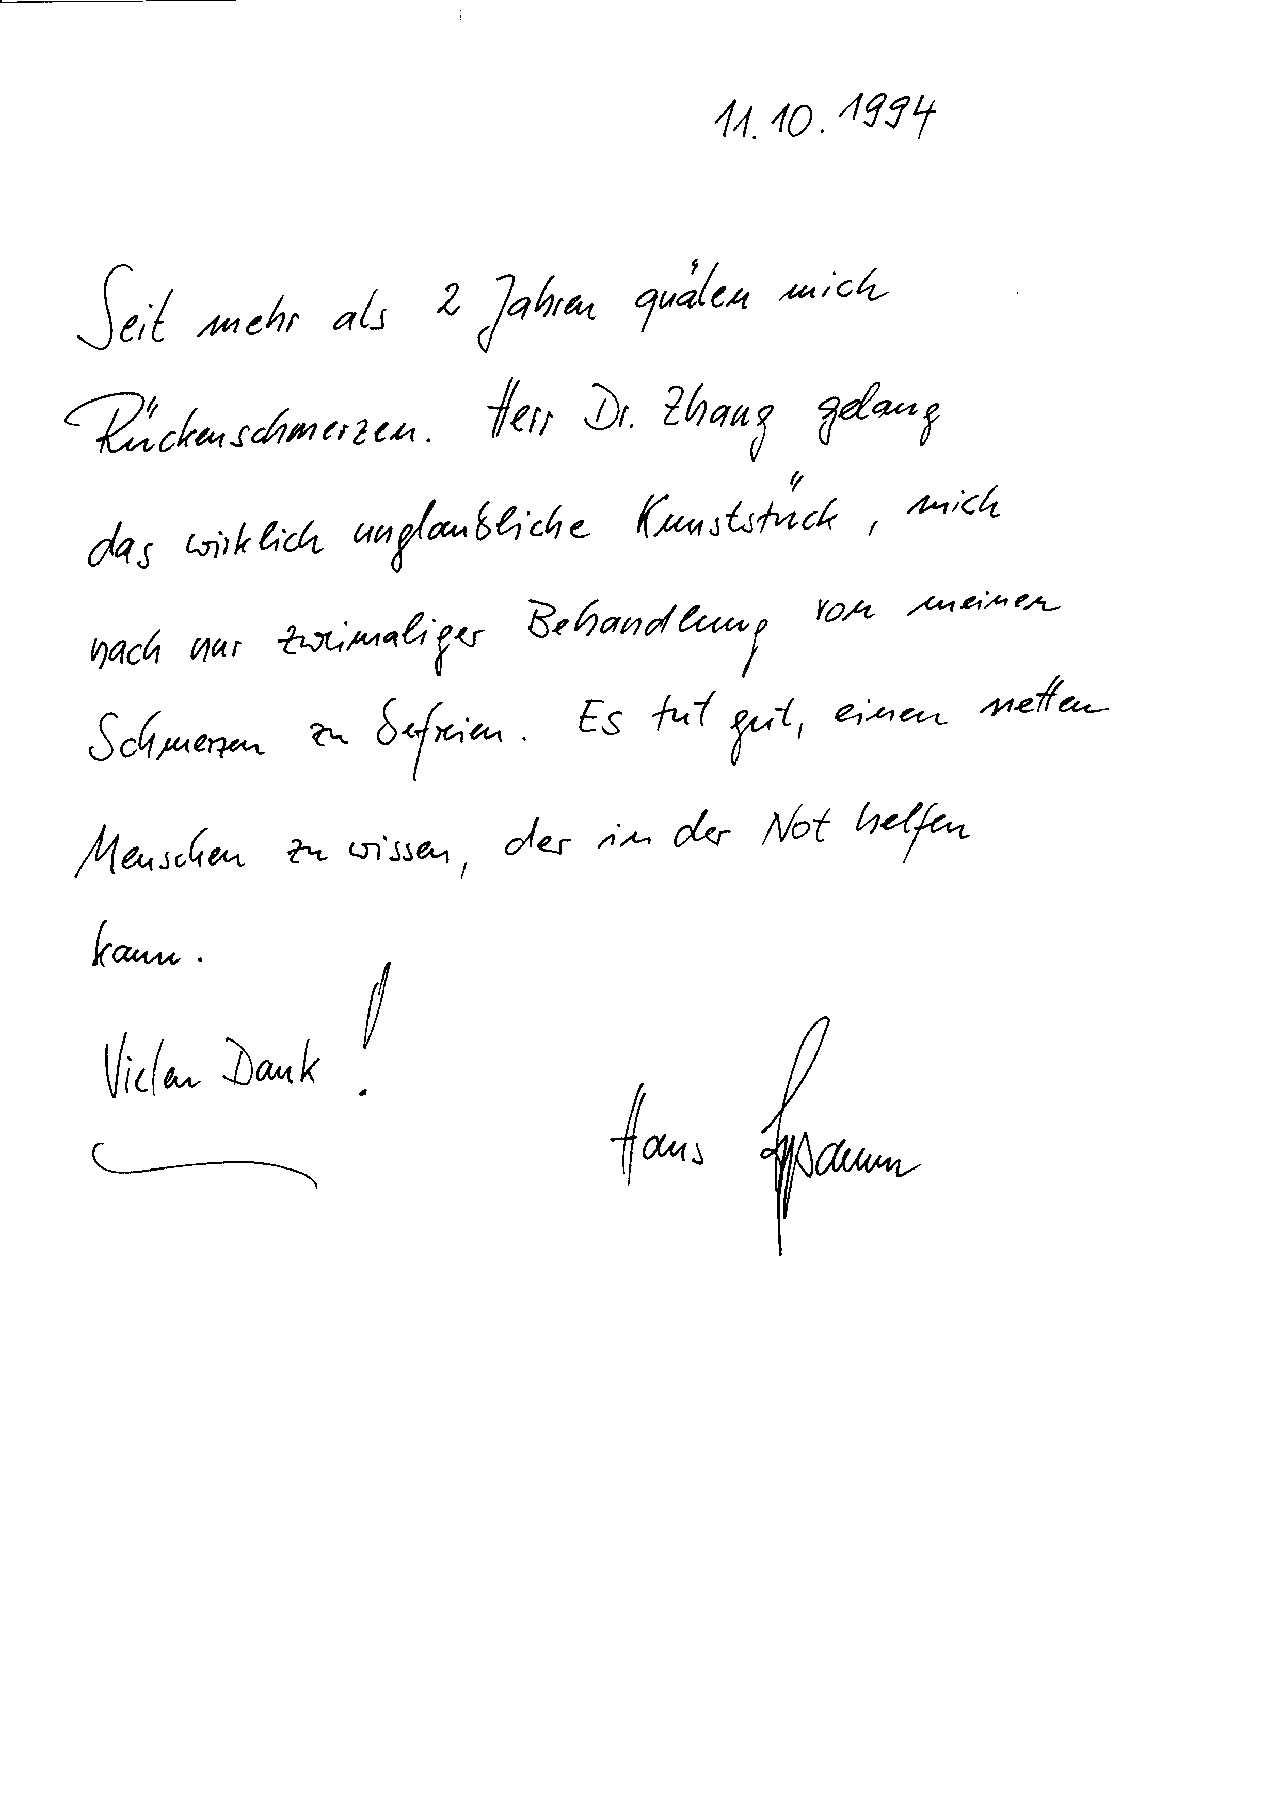 11.10.1994
Seit mehr als 2 Jahren quälen mich
Rückenschmerzen. Herr Dr. Zhang gelang
das wirklich unglaubliche Kunststück, mich
nach nur zweimaliger Behandlung von meinen
Schmerzen zu befreien. Es tut gut, einen netten
Menschen zu wissen, der in der Not helfen
kann.
Vielen Dank!
Hans